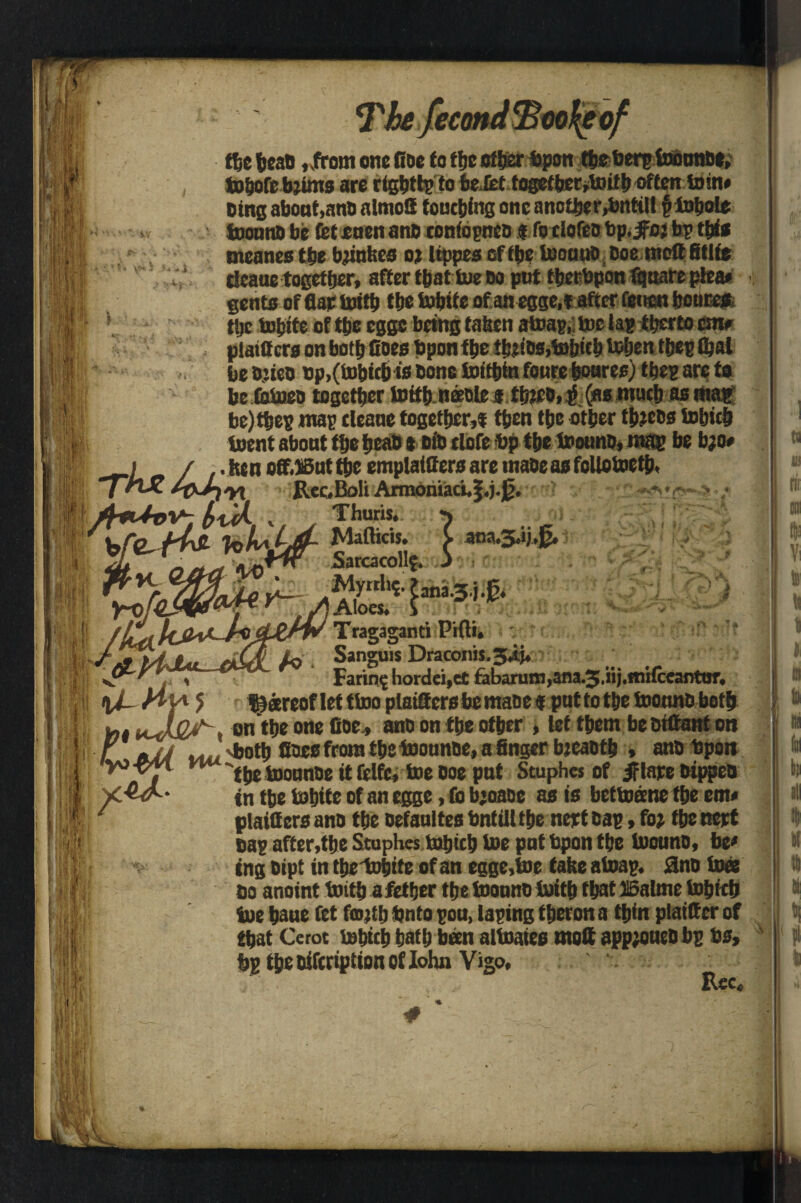 The second Booke of
the head, from one side to the other upon the very wounde,
whose brims are rightly to be set together, with often win-
ding about, and almost touching one another, untill ẏ whole
wound be set euen and conioyned & so closed up. For by this
meanes the brinkes or lippes of the wound, doe most fitlie
cleaue together, after that we do put therupon square plea-
gents of flax with the white of an egge, & after seuen houres,
the white of the egge being taken away, we lay therto em-
plaisters on both sides upon the thrids, which when they shal
be dried up, (which is done within foure houres) they are to
be sowed together with needle & thred, ẏ (as much as may
be) they may cleaue together, & then the other threds which
went about the head & did close up the wound, may be bro-
ken off. But the emplaisters are made as followeth.
Rec. Boli Armoniaci. ℥.j.ß.
Thuris.
Masticis. } ana.ʒ.ij.ß.
Sarcacollę.
Myrrhę. } ana.ʒ.j.ß.
Aloes.
Tragaganti Pisti.
Sanguis Draconis. ʒ.ij.
Farinę hordei, et fabarum, ana.ʒ.iij. misceantur.
Hereof let two plaisters be made & put to the wound both
on the one side, and on the other, let them be distant on
both sides from the wounde, a finger breadth, and upon
the wounde it selfe, we doe put Stuphes of Flaxe dipped
in the white of an egge, so broade as is betweene the em-
plaisters and the defaultes untill the next day, for the next
day after, the Stuphes which we put upon the wound, be-
ing dipt in the white of an egge, we take away. And wee
do anoint with a fether the wound with that Balme which
we haue set foorth unto you, laying theron a thin plaister of
that Cerot which hath been alwaies most approued by us,
by the discription of Iohn Vigo.
Rec.